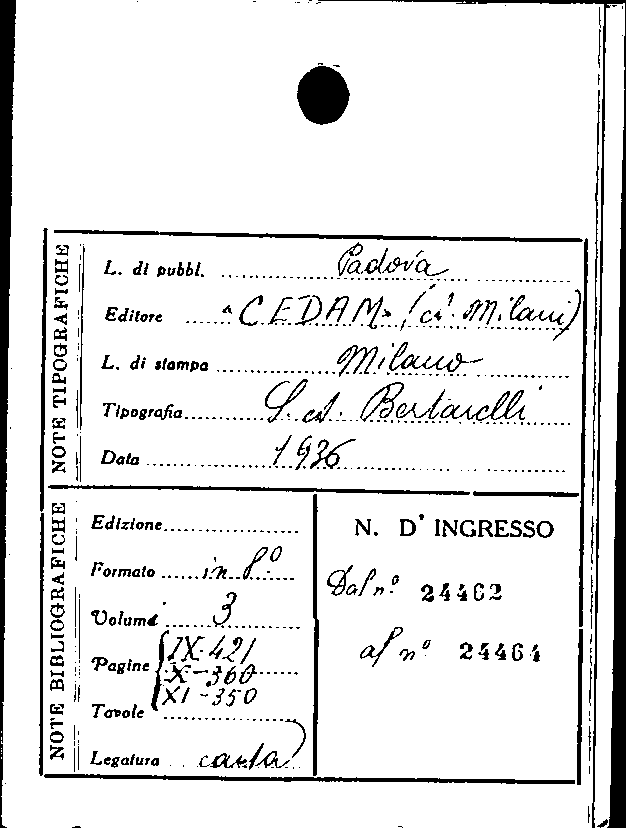 NOTE TIPOGRAFICHE
L. di pubbl. Padova
Editore "CEDAM" (cà Milani)
L. di stampa Milano
Tipografia S. Bertarelli
Data 1936
NOTE BIBLIOGRAFICHE
Edizione
Formato in 8º
Volumi 3
Pagine IX-421
X-360
XI-350
Tavole
Legatura carta
N. D' INGRESSO
Dal nº 24462
al nº 24464